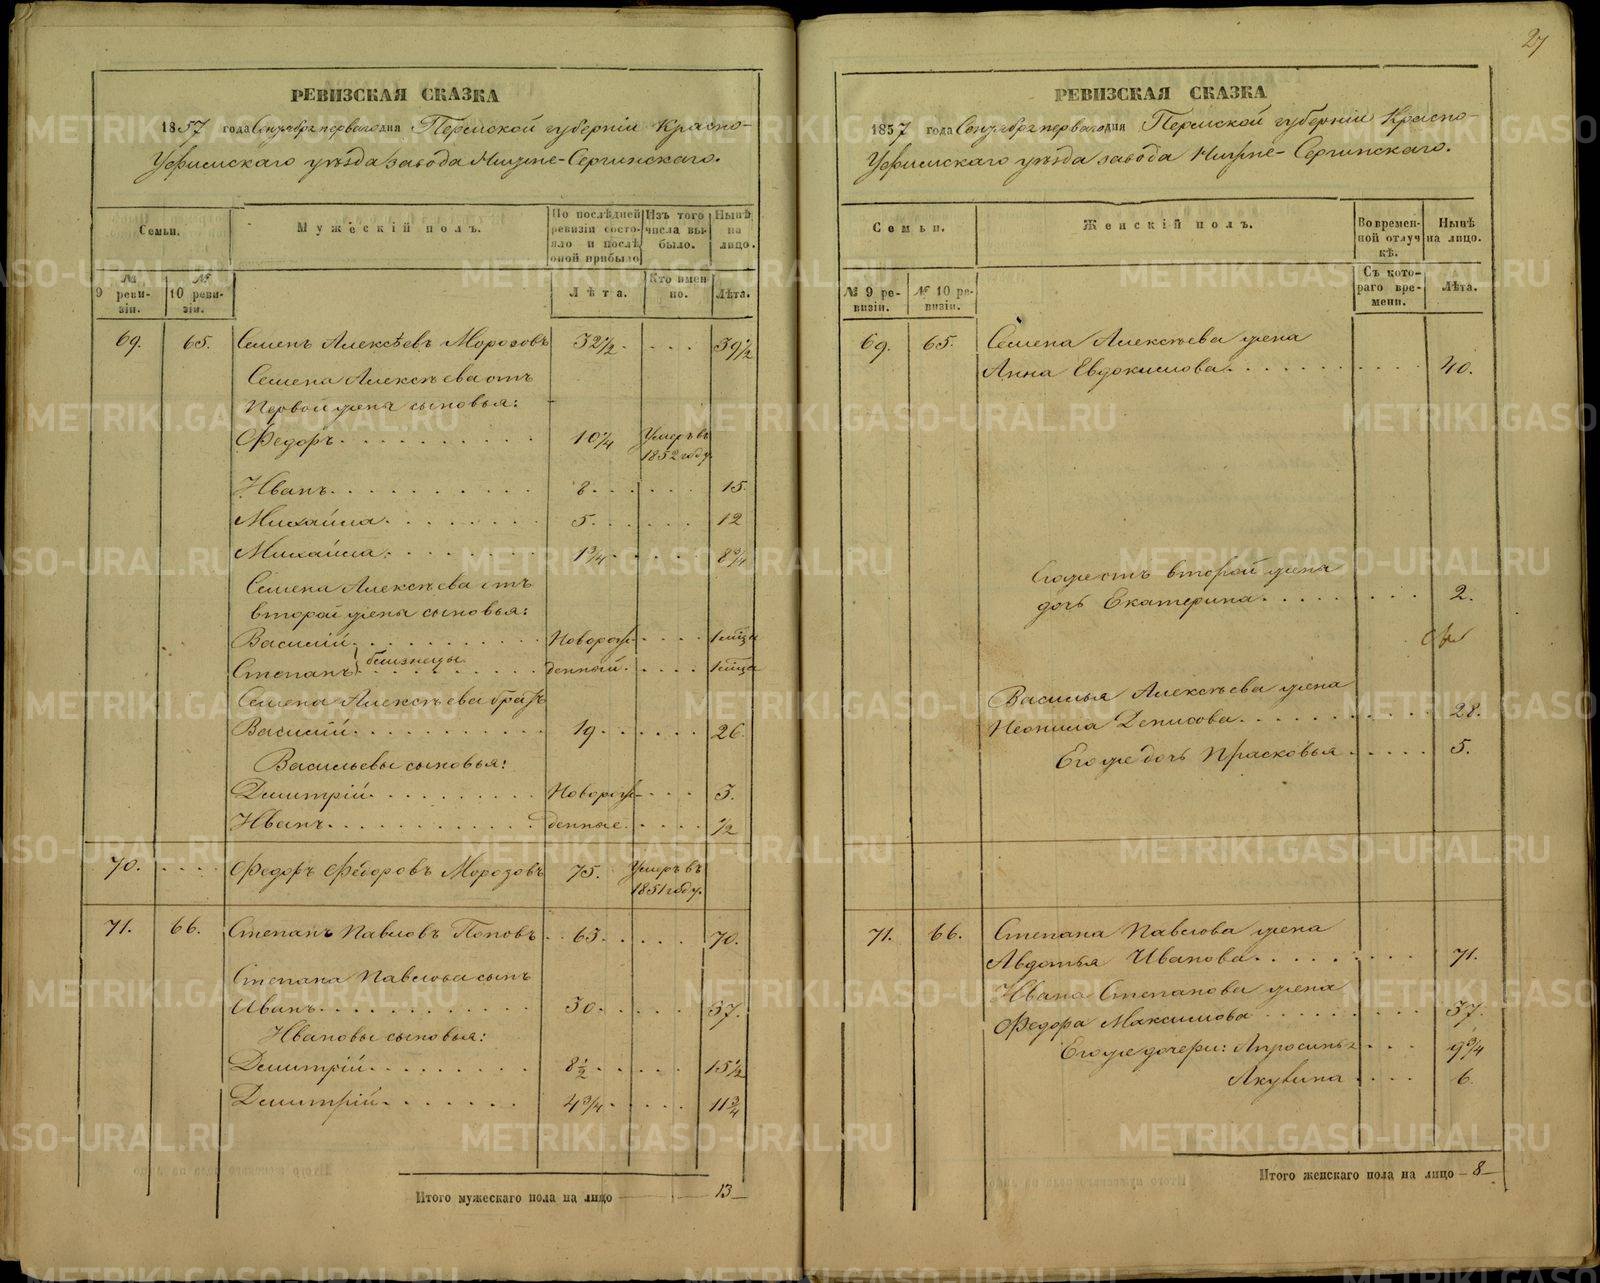 27
РЕВИЗСКАЯ СКАЗКА
1857 года Сентября перваго дня Пермской губерніи Красно-
Уфимскаго уѣзда завода Нижне-Сергинскаго.
Семьи.
Мужескій полъ.
По послѣдней ревизіи состо-яло и послѣ оной прибыло
Изъ того числа вы-было.
Нынѣ на лицо.
№ 9 реви-зіи.
№ 10 реви-зіи.
Лѣта.
Кто имен-но.
Лѣта.
69. 65. Семенъ Алексѣевъ Морозовъ 32 1/2 . . . . 39 1/2
Семена Алексѣева отъ
первой жены сыновья:
Федоръ 10 1/4 Умеръ въ 1852 году.
Иванъ 8 15.
Михайла 5. 12
Михайла 1 3/4 8 3/4
Семена Алексѣева отъ
второй жены сыновья:
Василій Новорож- 1 мѣца
Степанъ близнецы денный. 1 мѣца
Семена Алексѣева братъ
Василій 19 26.
Васильевы сыновья:
Дмитрій Новорож- 3.
Иванъ денные. 1/2
70. Федоръ Федоровъ Морозовъ 75. Умеръ въ 1851 году.
71. 66. Степанъ Павловъ Поповъ 63. 70.
Степана Павлова сынъ
Иванъ 30. 37.
Ивановы сыновья:
Дмитрій 8 1/2 15 1/2
Дмитрій 4 3/4 11 3/4
Итого мужескаго пола на лицо 13
РЕВИЗСКАЯ СКАЗКА
1857 года Сентября перваго дня Пермской губерніи Красно-
Уфимскаго уѣзда завода Нижне-Сергинскаго.
Семьи.
Женскій полъ.
Во времен-ной отлуч-кѣ.
Нынѣ на лицо.
№ 9 ре-визіи.
№ 10 ре-визіи.
Съ кото-раго вре-мени.
Лѣта.
69. 65. Семена Алексѣева жена
Анна Евдокимова 40.
Его же отъ второй жены
дочь Екатерина 2.
Василья Алексѣева жена
Неонила Денисова 28.
Его же дочь Прасковья 5.
71. 66. Степана Павлова жена
Авдотья Иванова 71.
Ивана Степанова жена
Федора Максимова 37.
Его же дочери: Апросинья 9 3/4
Акулина 6.
Итого женскаго пола на лицо 8
METRIKI.GASO-URAL.RU